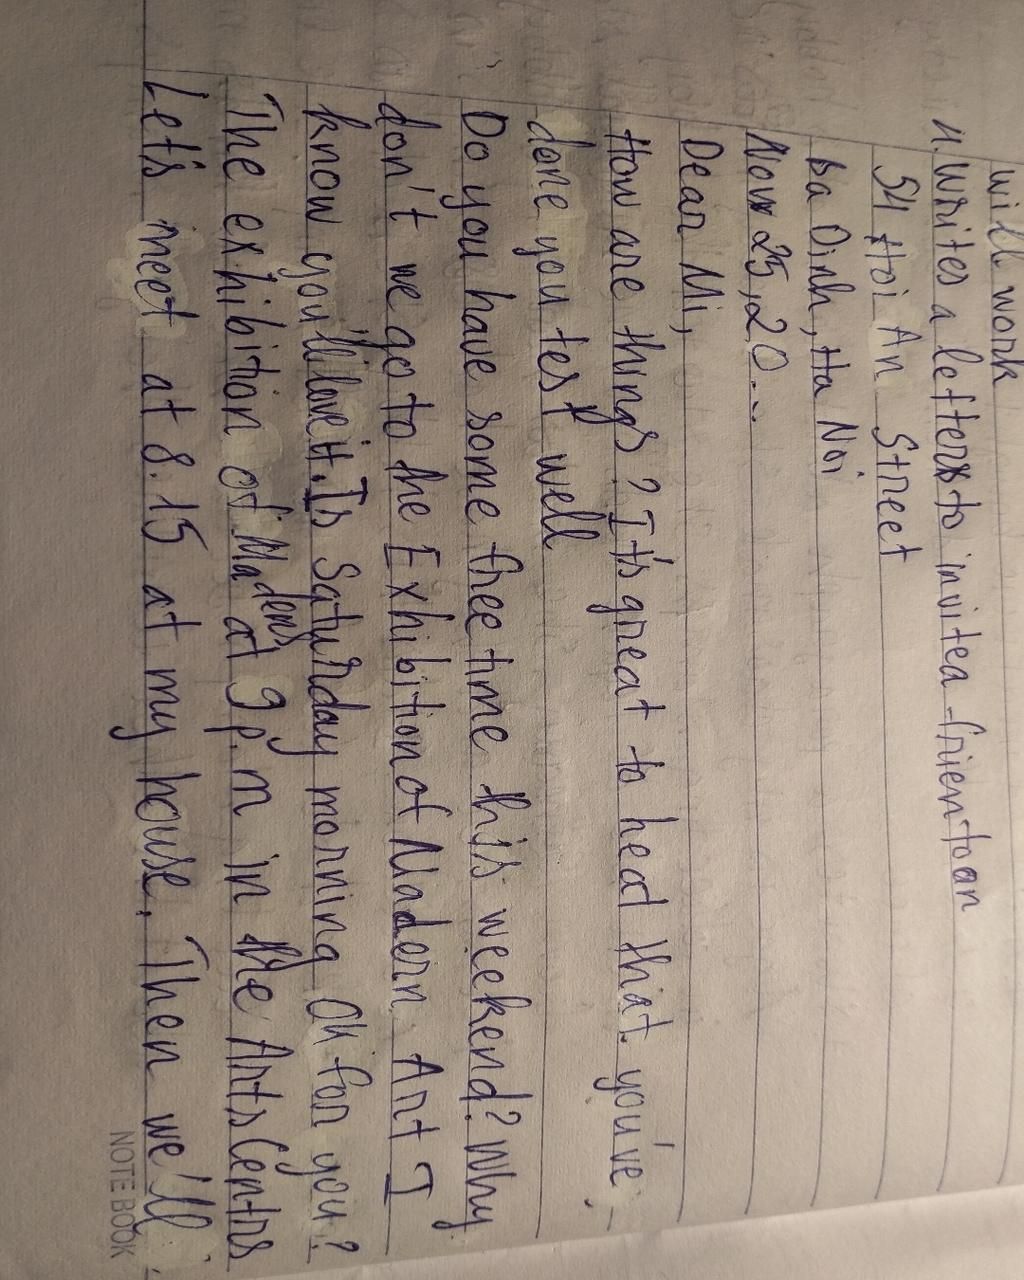 will work
4. Writes a letters to invitea frientoan
54 Hoi An Street
Ba Dinh, Ha Noi
Nov 25, 20...
Dear Mi,
How are things? It's great to head that you've
done you test well
Do you have some free time this weekend? Why
don't we go to the Exhibition of Madern Art I
know you'll love it. Is Saturday morning OK for you?
The exhibition of Madern at 9 p.m in the Arts Centrs
Let's meet at 8.15 at my house. Then we'll
NOTE BOOK